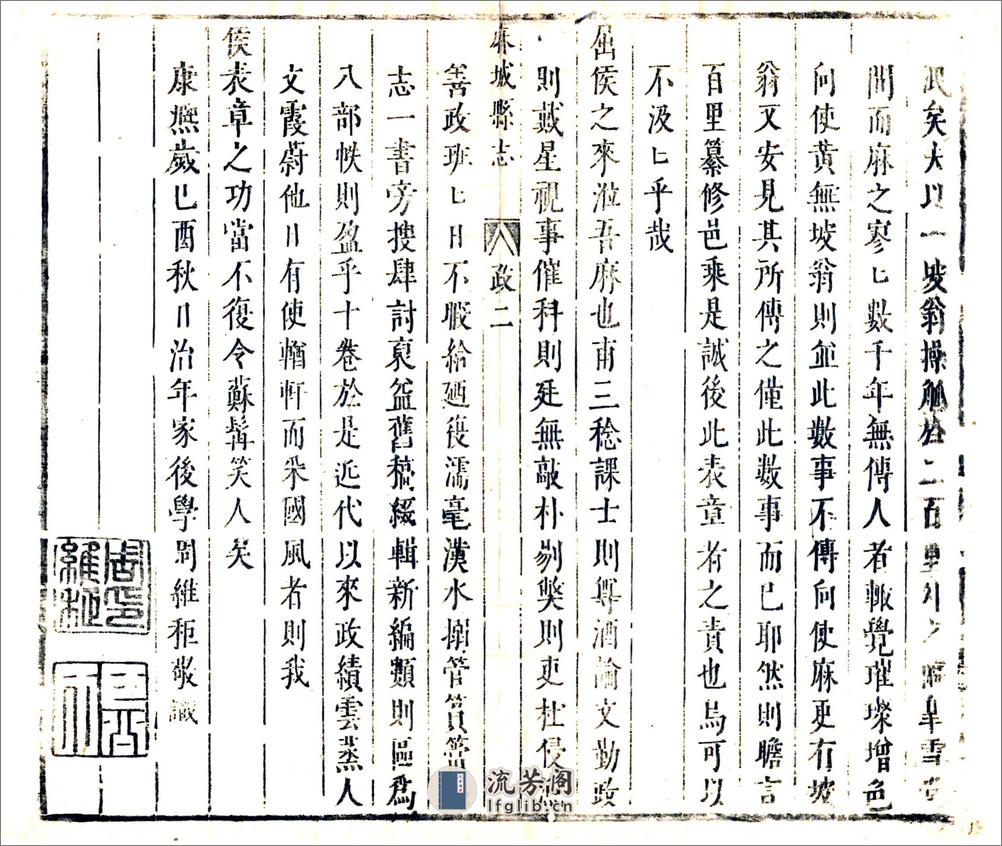 泯矣夫以一坡翁操觚於二百
間而麻之寥匕數千年無傳人者輙覺璀璨增色
向使黃無坡翁則並此數事不傳向使麻更有坡
翁又安見其所傳之僅此數事而已耶然則瞻言
百里纂修邑乘是誠後此表章者之責也烏可以
不汲匕乎哉
屈侯之來涖吾麻也甫三稔課士則尊酒論文勤政
則戴星視事催科則廷無敲朴剔獘則吏杜侵
麻城縣志 政二
善政班匕日不暇給廼復濡毫漢水搦管
志一書旁搜肆討裒益舊稿綴輯新編類則區爲
八部帙則盈乎十卷於是近代以來政績雲蒸人
文霞蔚他日有使輶軒而采國風者則我
侯表章之功當不復令蘇髯笑人矣
康熙歲己酉秋日治年家後學周維秬敬識
周印維秬
流芳阁
lfglib.cn